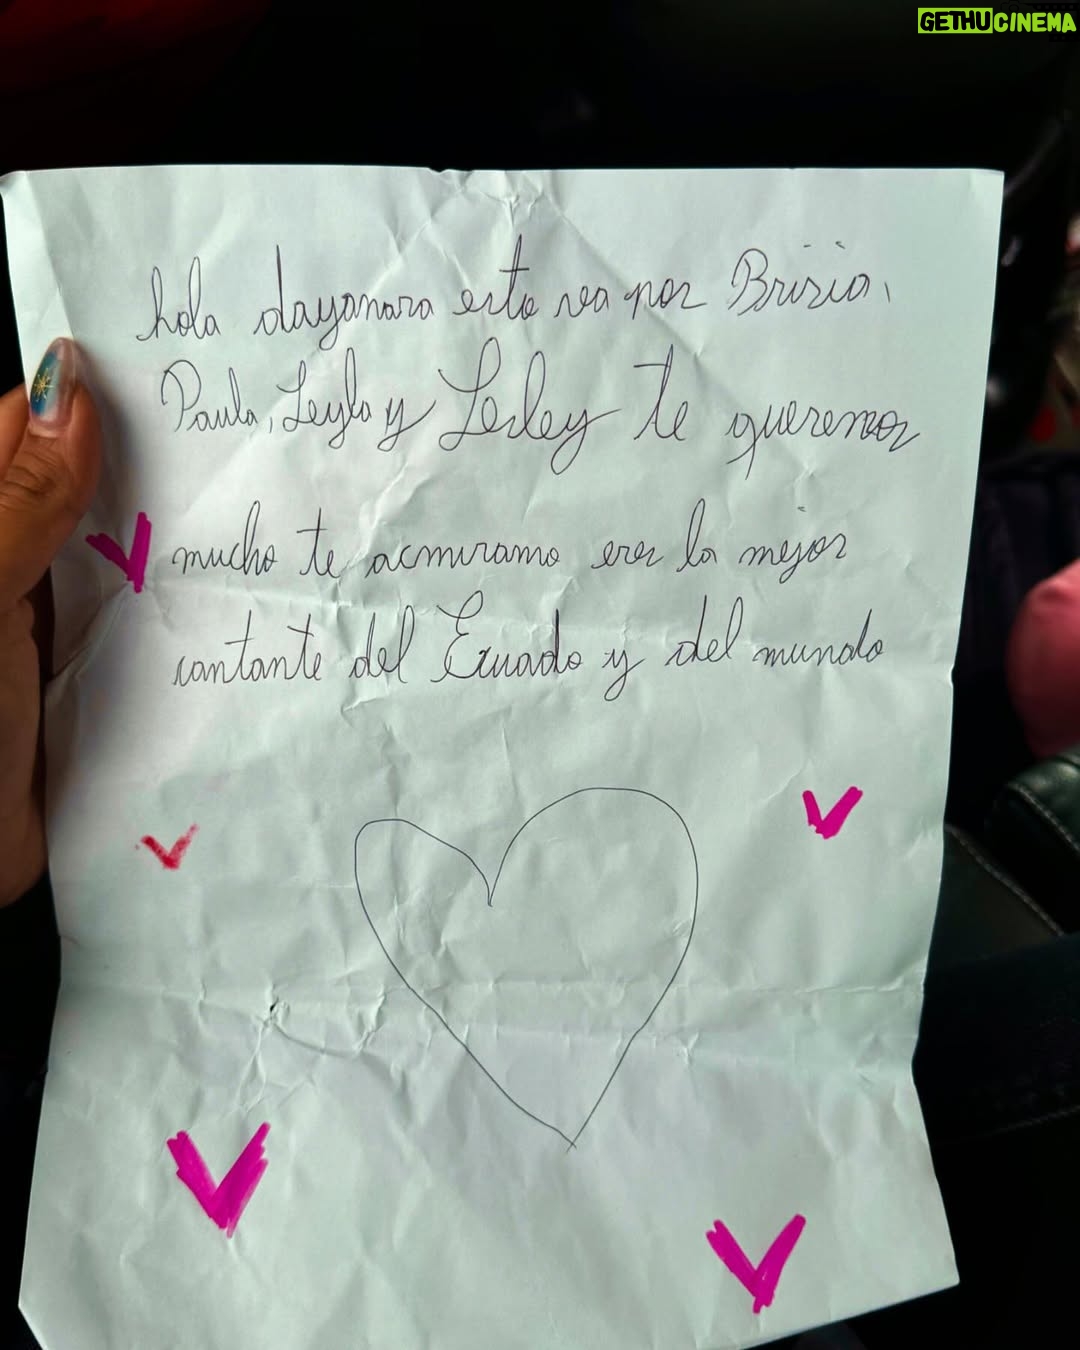 GETHUCINEMA
hola dayanara esto va por Brisia,
Paula, Leyla y Lesley te queremos
mucho te acmiramo eres la mejor
cantante del Ecuado y del mundo